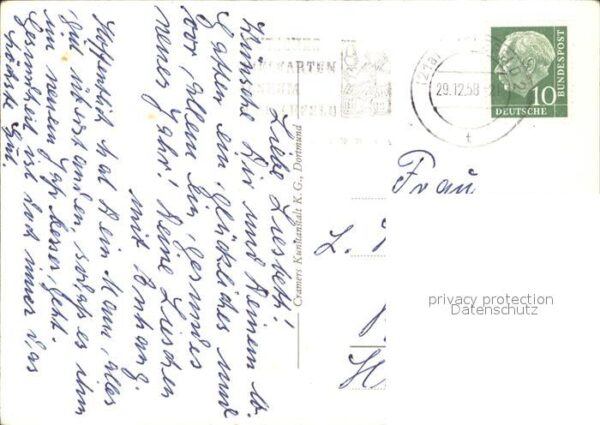 Liebe Liesbeth!
Wünsche Dir und Deinem lb.
Gatten ein glückliches und
vor allem ein gesundes
neues Jahr! Deine Lieschen
mit Anhang.
Hoffentlich hat Dein Mann alles
gut überstanden, sodaß es ihm
im neuen Jahr besser geht.
Gesundheit ist doch immer das
höchste Gut.
Cramers Kunstanstalt K.G., Dortmund
29.12.58
10
DEUTSCHE
BUNDESPOST
Frau
L.
privacy protection
Datenschutz